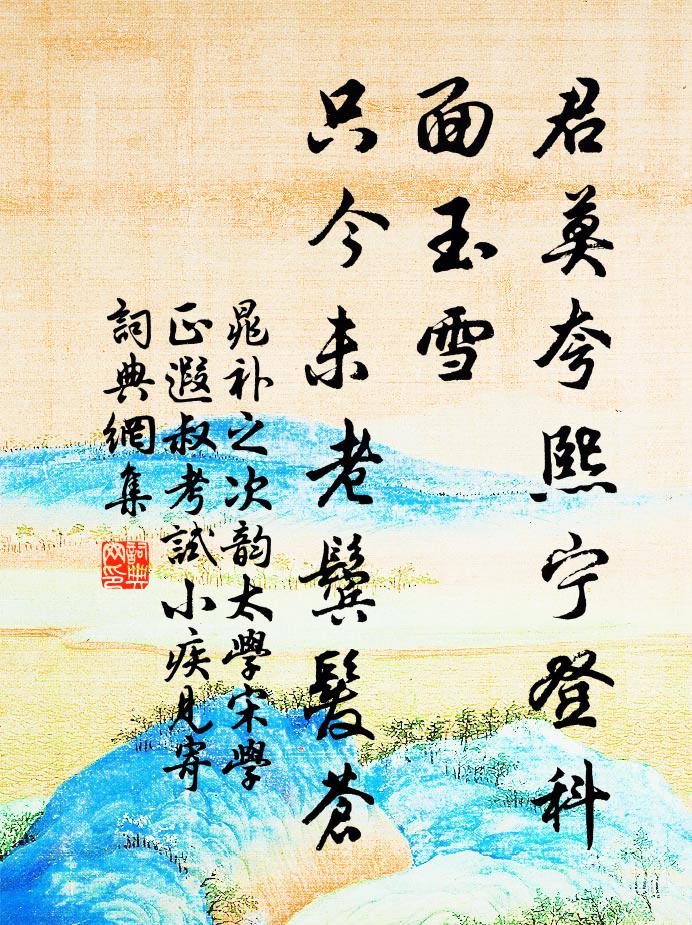 君莫夸熙宁登科
面玉雪
只今未老鬓髮苍
晁补之次韵太學宋學
正遐叔考試小疾見寄
詞典網集
詞典
网印